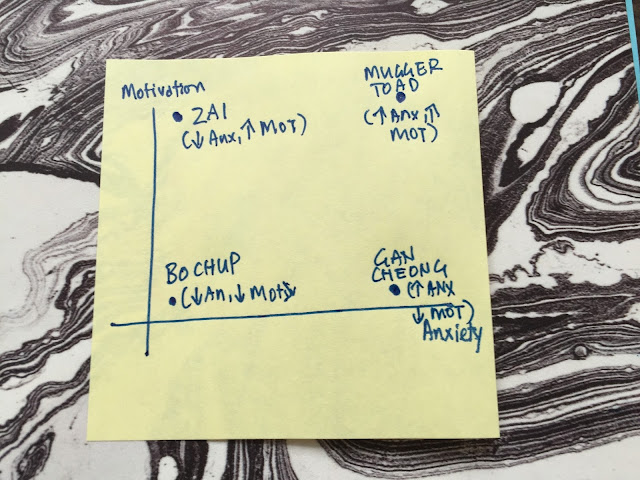 Motivation
ZAI
(↓ Anx, ↑ MOT)
MUGGER
TOAD
(↑ Anx, ↑
MOT)
BOCHUP
(↓ An, ↓ Mot)
GAN
CHEONG
(↑ ANX
↓ MOT)
Anxiety